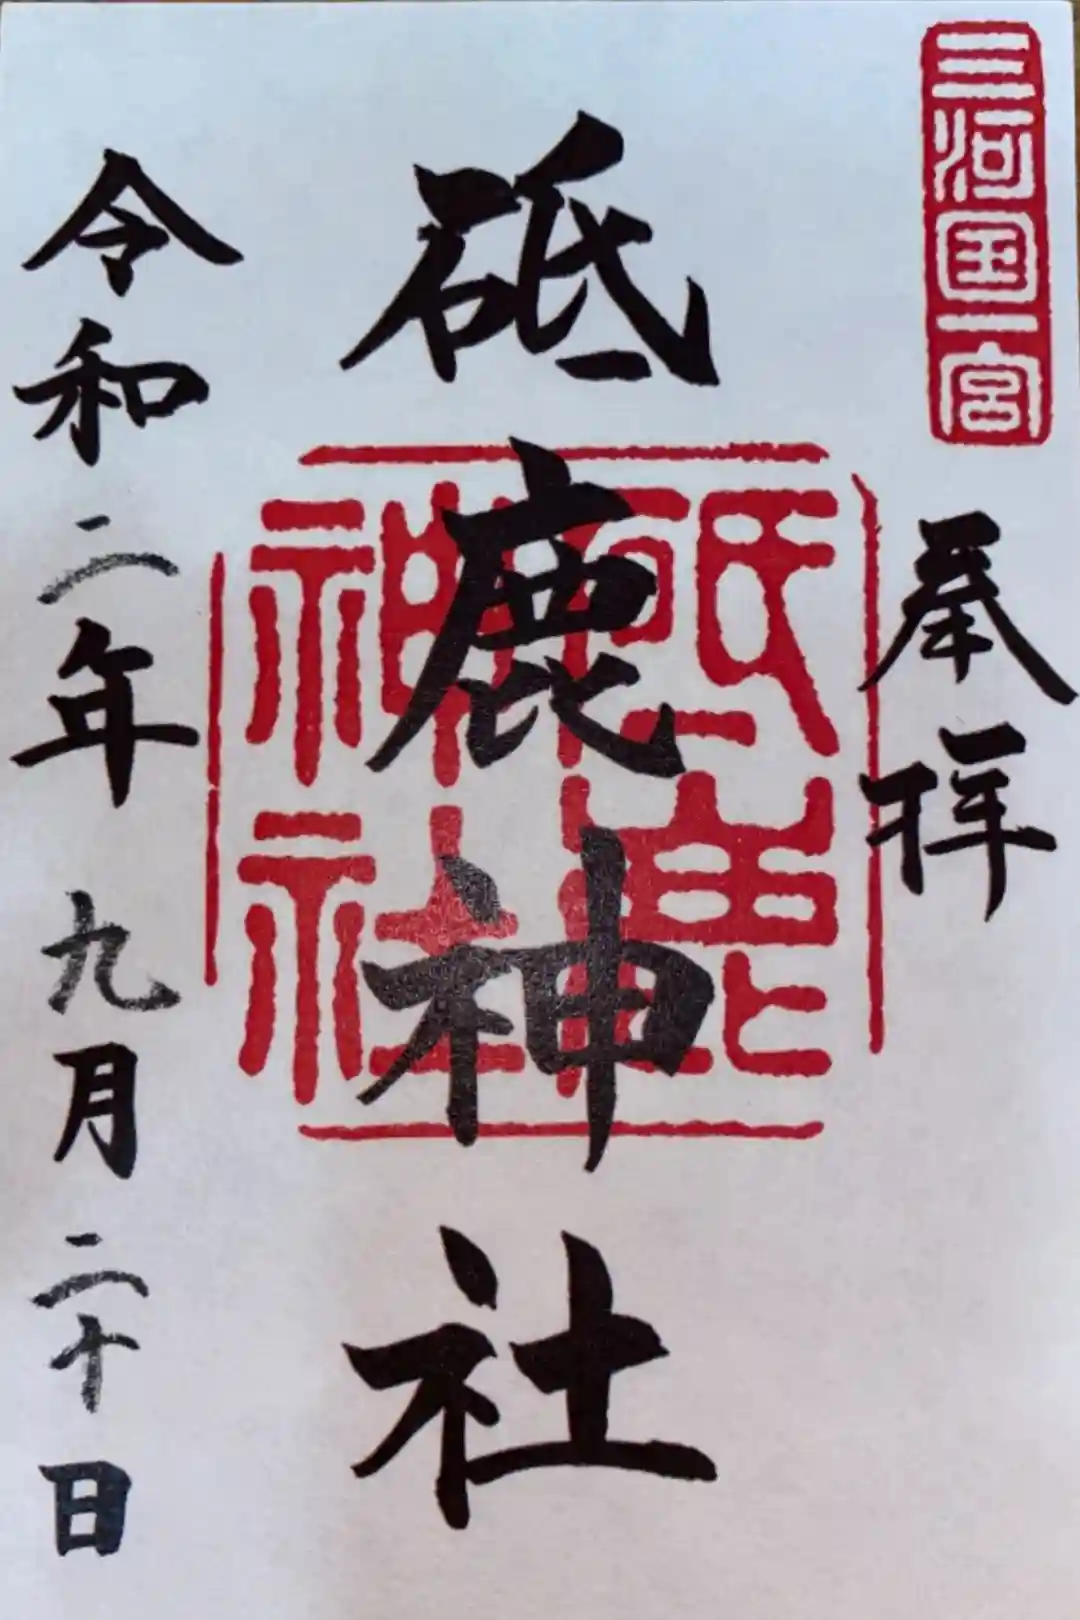 三河国一宮
奉拝
砥鹿神社
砥鹿神社
令和二年九月二十日